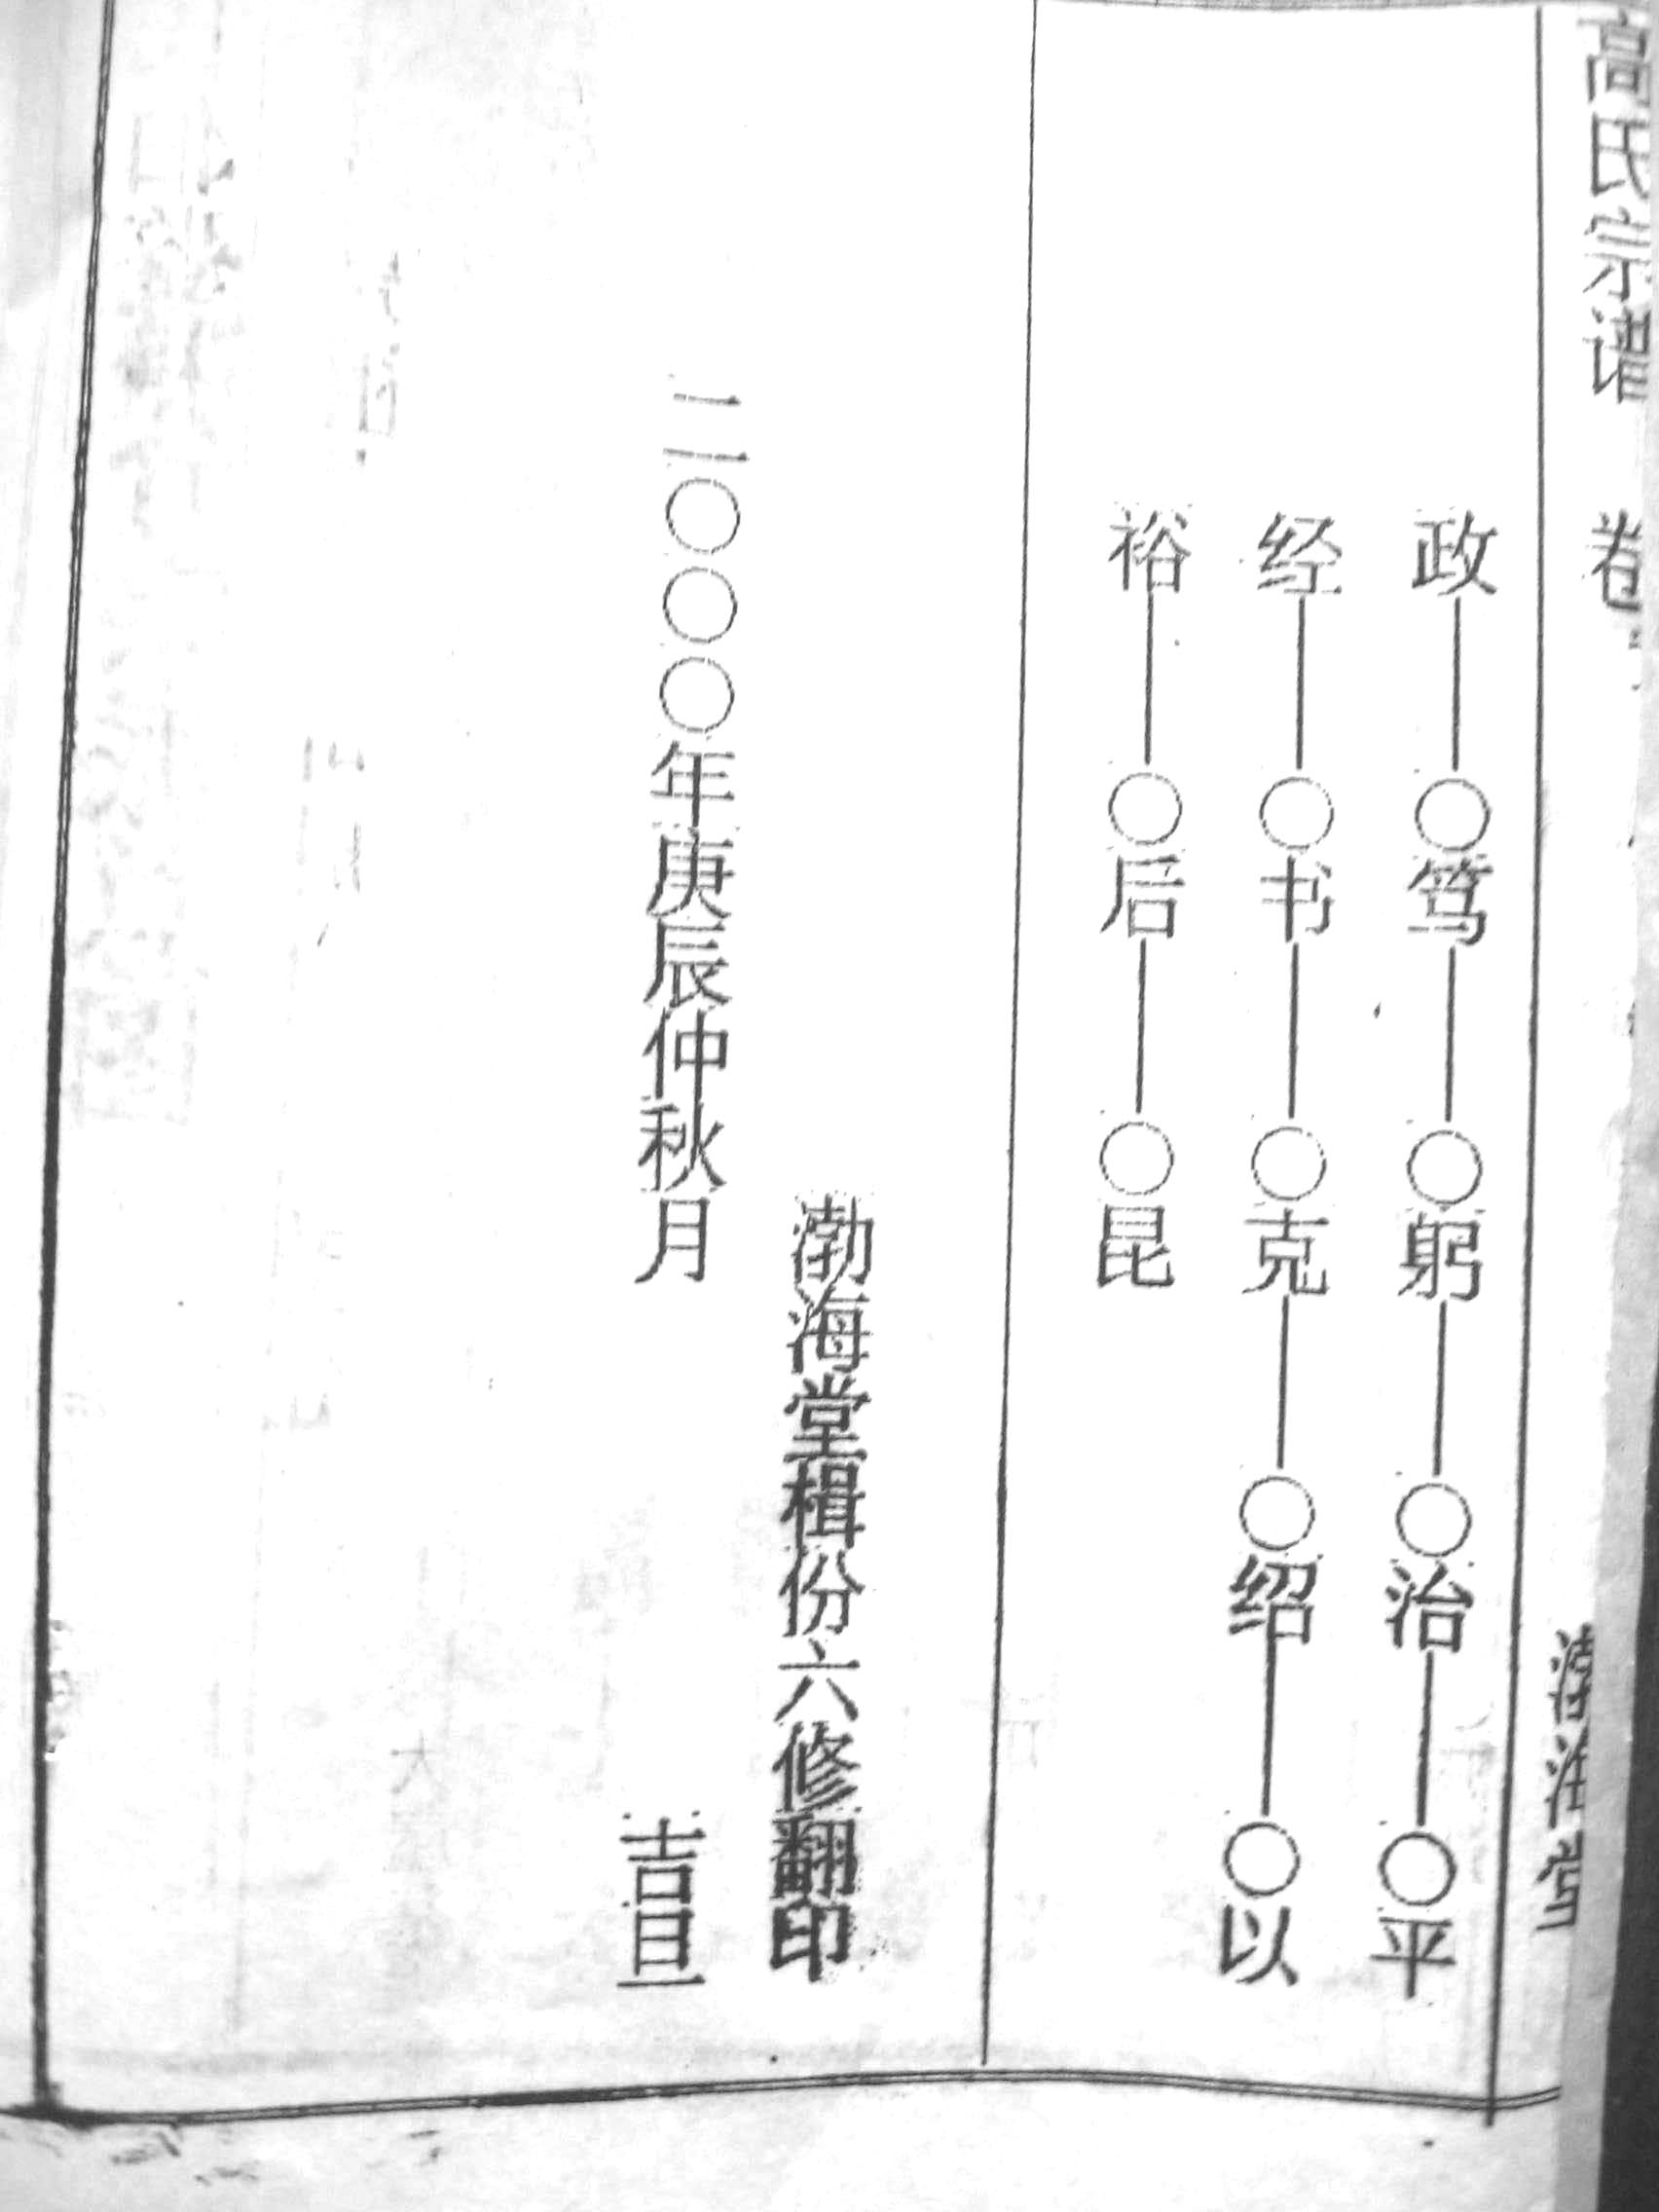 高氏宗谱 卷
渤海堂
政——○笃——○躬——○治——○平
经——○书——○克——○绍——○以
裕——○后——○昆
渤海堂楫份六修翻印
二〇〇〇年庚辰仲秋月 吉旦